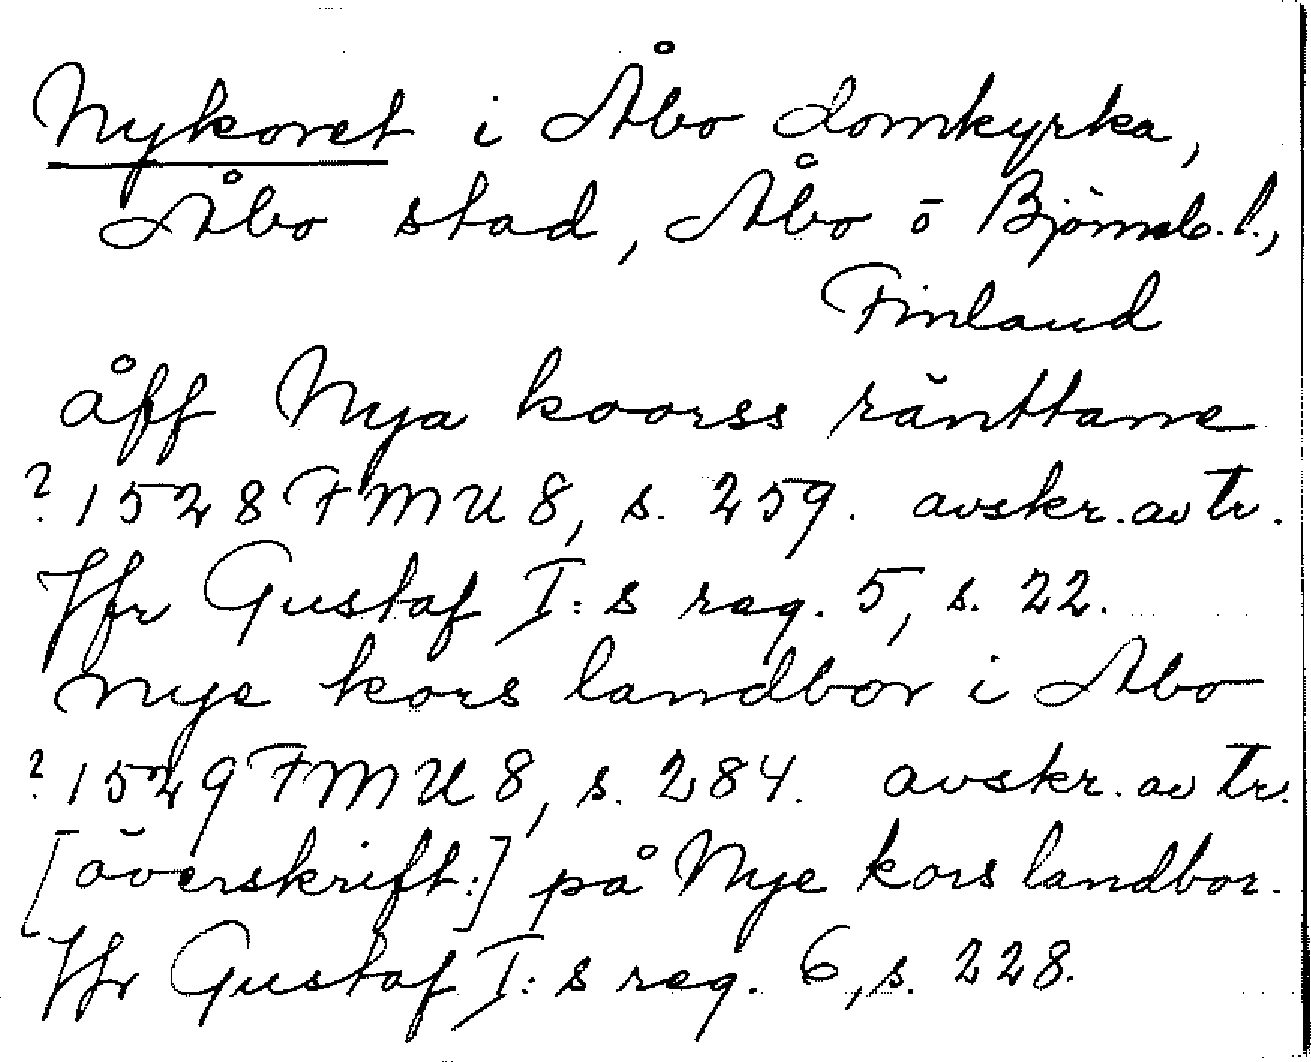 Nykoret i Åbo domkyrka,
Åbo stad, Åbo o Björneb. l.,
Finland
åff Nya koorssränttane
? 1528 FMU 8, s. 259. avskr. av tr.
Jfr Gustaf I:s reg. 5, s. 22.
nye kors landbor i Åbo
? 1529 FMU 8, s. 284. avskr. av tr.
[överskrift:] på Nye kors landbor.
Jfr Gustaf I:s reg. 6, s. 228.